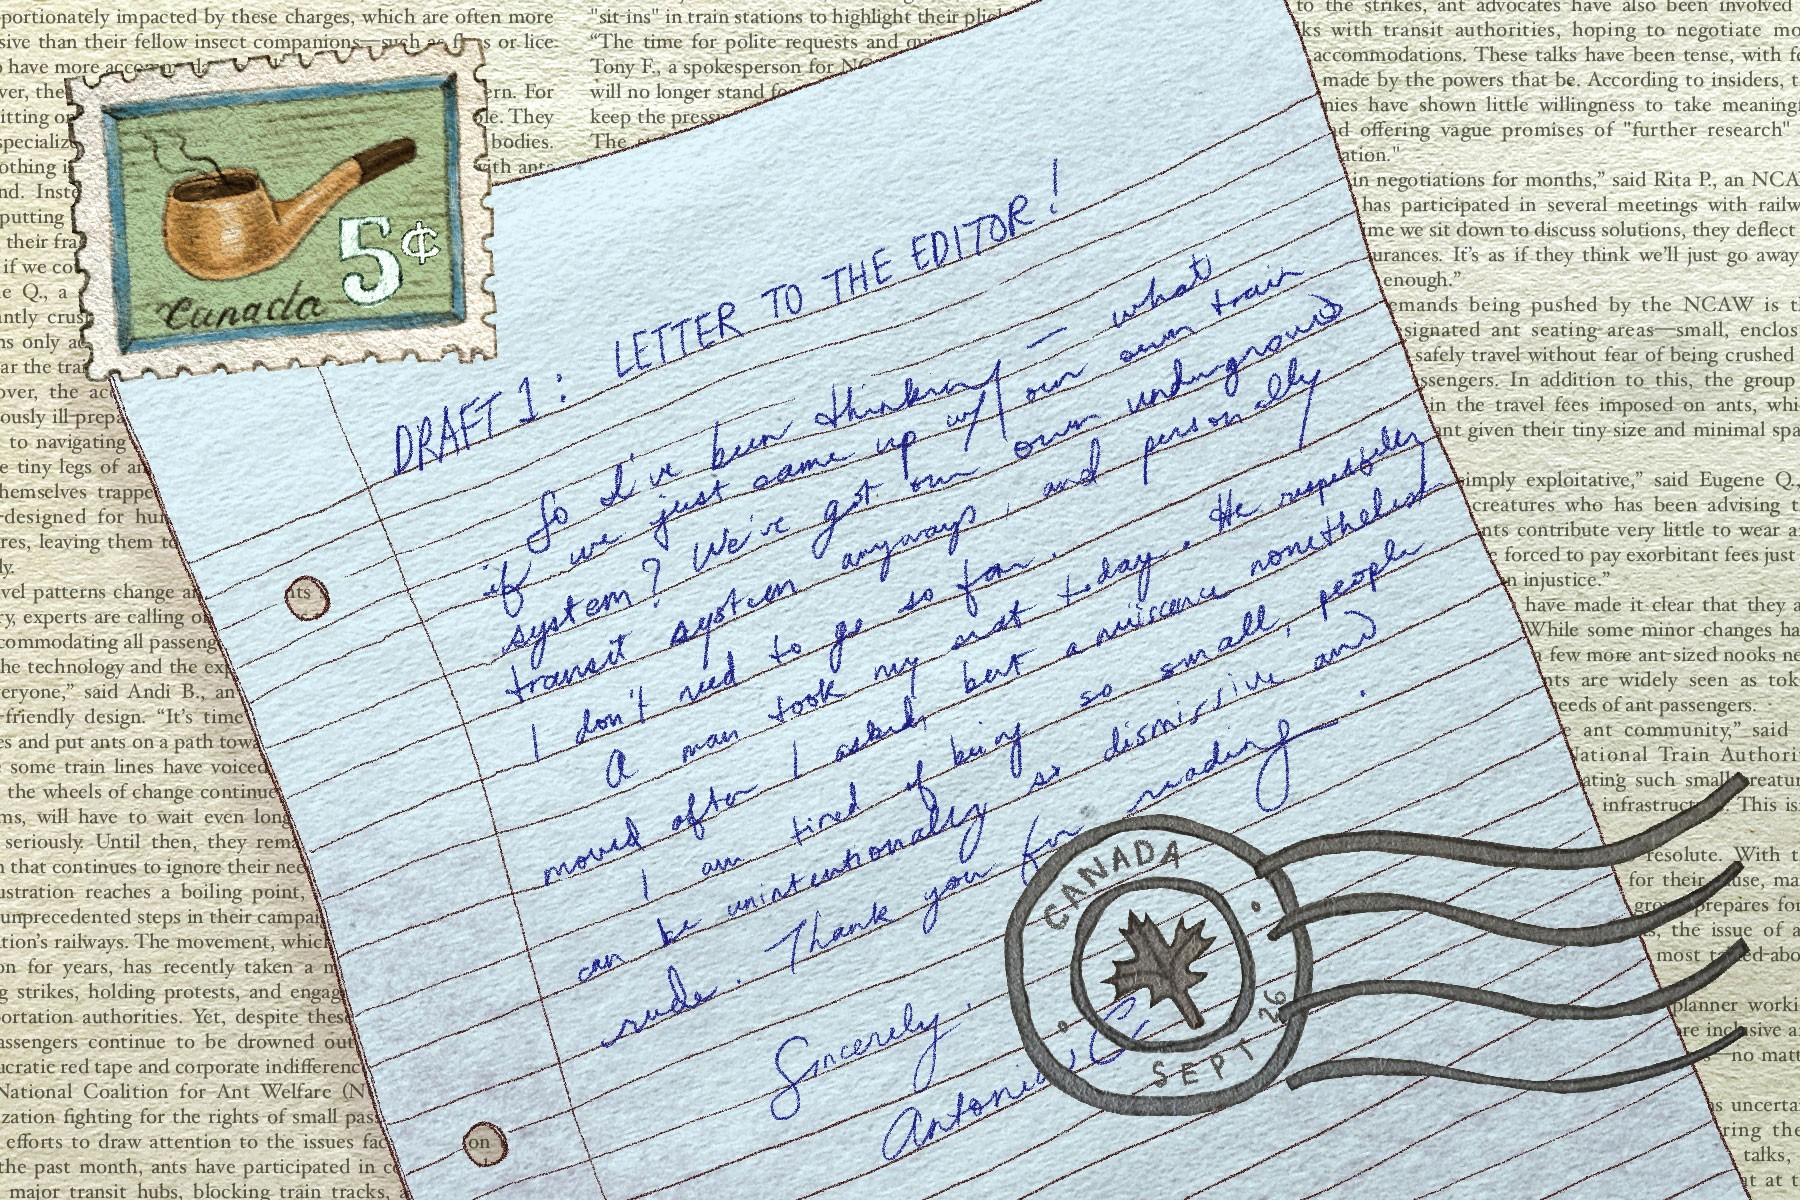 portionately impacted by these charges, which are often more
sive than their fellow insect companions—such as or lice.
have more
ver, the ern. For
itting on le. They
specializ bodies.
othing i with ants
nd. Inste
putting
their fra
if we co
e Q., a
antly crus
ns only ad
ar the tra
over, the acc
ously ill-prep
to navigating
e tiny legs of an
hemselves trappe
-designed for hum
res, leaving them to
ly.
vel patterns change an nts
ry, experts are calling on
commodating all passeng
he technology and the exp
veryone,” said Andi B., an
-friendly design. “It’s time
es and put ants on a path towa
some train lines have voiced
the wheels of change continue
ms, will have to wait even long
seriously. Until then, they rema
n that continues to ignore their nee
ustration reaches a boiling point,
unprecedented steps in their campai
ation’s railways. The movement, which
on for years, has recently taken a m
g strikes, holding protests, and engag
ortation authorities. Yet, despite these
assengers continue to be drowned out
ucratic red tape and corporate indifference
National Coalition for Ant Welfare (N
ization fighting for the rights of small pass
efforts to draw attention to the issues fac on
the past month, ants have participated in co
major transit hubs, blocking train tracks, a
"sit-ins" in train stations to highlight their plig
“The time for polite requests and qu
Tony F., a spokesperson for NC
will no longer stand fo
keep the press
The
to the strikes, ant advocates have also been involved
ks with transit authorities, hoping to negotiate mo
accommodations. These talks have been tense, with fe
made by the powers that be. According to insiders, t
nies have shown little willingness to take meaningf
d offering vague promises of "further research"
ation."
in negotiations for months,” said Rita P., an NCA
has participated in several meetings with railw
me we sit down to discuss solutions, they deflect
urances. It’s as if they think we’ll just go away
enough.”
emands being pushed by the NCAW is th
signated ant seating areas—small, enclos
safely travel without fear of being crushed
ssengers. In addition to this, the group
in the travel fees imposed on ants, whi
nt given their tiny size and minimal spa
imply exploitative,” said Eugene Q.,
creatures who has been advising t
nts contribute very little to wear a
forced to pay exorbitant fees just
n injustice.”
have made it clear that they a
While some minor changes ha
few more ant-sized nooks ne
nts are widely seen as tok
eeds of ant passengers.
ant community,” said
ational Train Authori
ating such small creatur
infrastruct This is
resolute. With t
for their cause, ma
gro prepares for
s, the issue of a
most talked-abo
planner worki
re inclusive a
—no matt
s uncerta
ring the
talks,
at at t
5¢
Canada
DRAFT 1: LETTER TO THE EDITOR!
So I've been thinking — what
if we just came up w/ our own train
system? We've got our own underground
transit system anyways, and personally
I don't need to go so far.
A man took my seat today. He respectfully
moved after I asked, but a nuisance nonetheless.
I am tired of being so small, people
can be unintentionally so dismissive and
rude. Thank you for reading.
Sincerely,
Antonius C
CANADA
SEPT 26